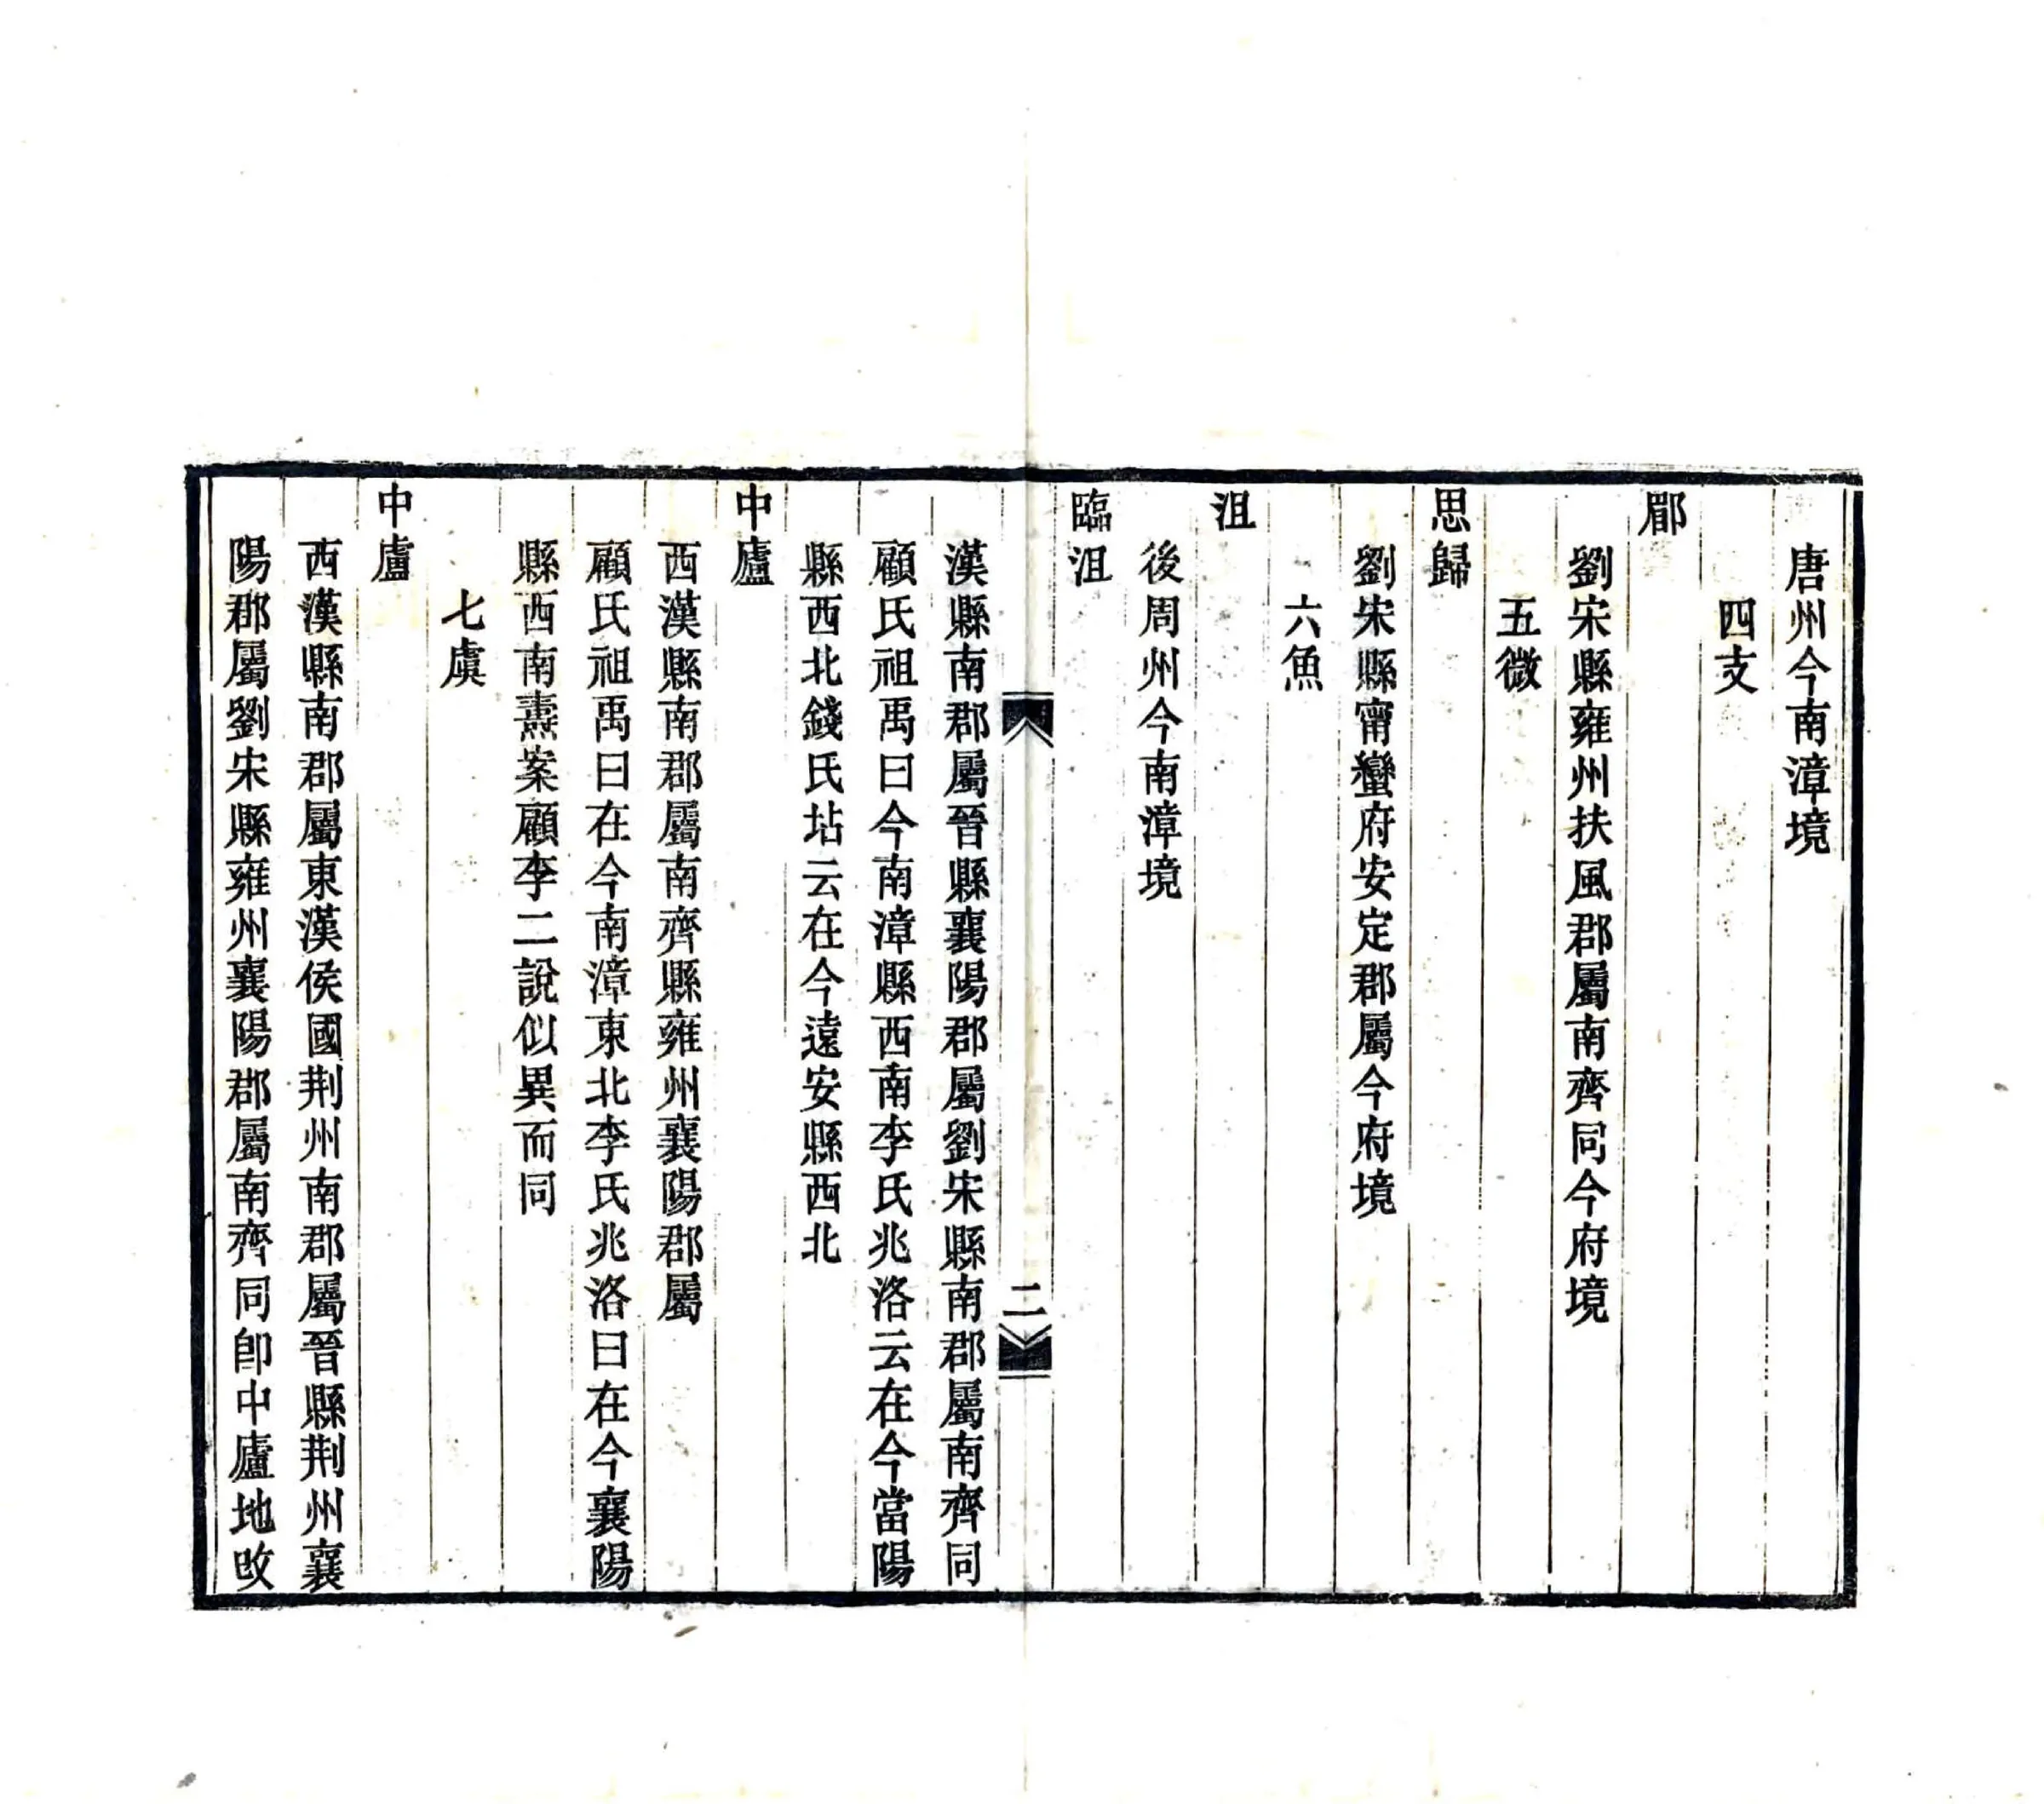 唐州今南漳境
四支
郿
劉宋縣雍州扶風郡屬南齊同今府境
五微
思歸
劉宋縣甯蠻府安定郡屬今府境
六魚
沮
後周州今南漳境
臨沮
二
漢縣南郡屬晉縣襄陽郡屬劉宋縣南郡屬南齊同
顧氏祖禹曰今南漳縣西南李氏兆洛云在今當陽
縣西北錢氏坫云在今遠安縣西北
中廬
西漢縣南郡屬南齊縣雍州襄陽郡屬
顧氏祖禹曰在今南漳東北李氏兆洛曰在今襄陽
縣西南燾案顧李二說似異而同
七虞
中廬
西漢縣南郡屬東漢侯國荆州南郡屬晉縣荆州襄
陽郡屬劉宋縣雍州襄陽郡屬南齊同卽中廬地改